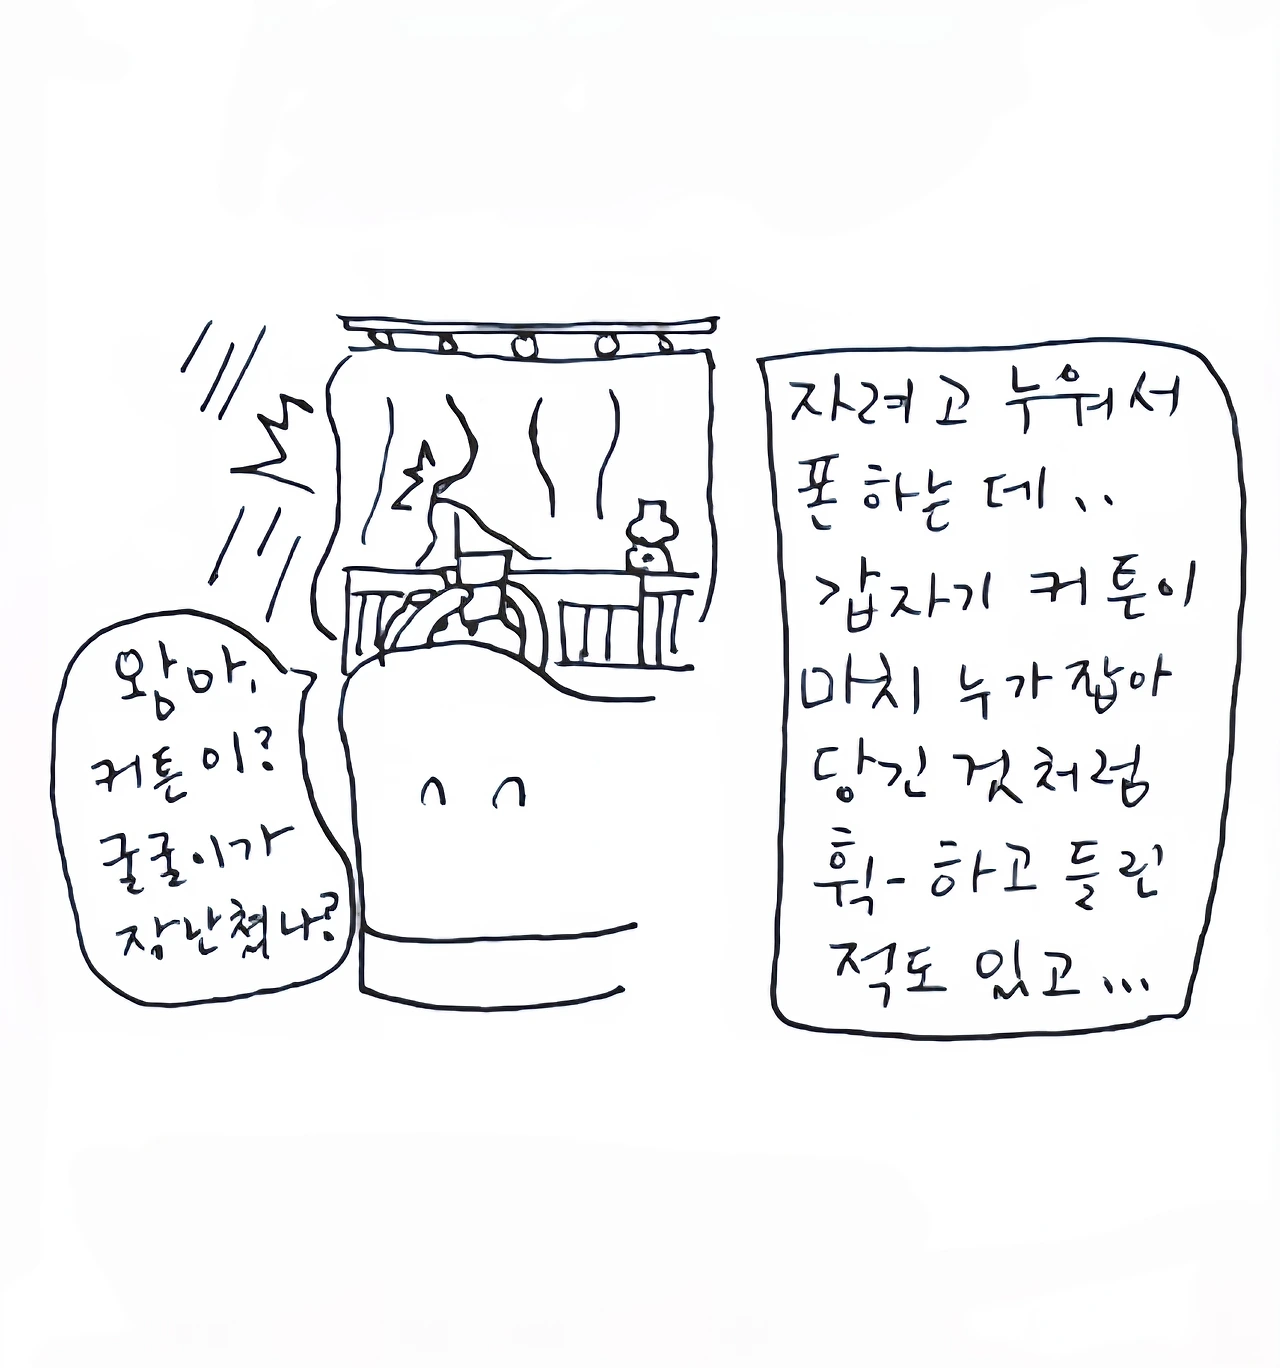 왕마,
커튼이?
굴굴이가
장난쳤나?
자려고 누워서
폰하는데..
갑자기 커튼이
마치 누가 잡아
당긴 것처럼
휙- 하고 들린
적도 있고...